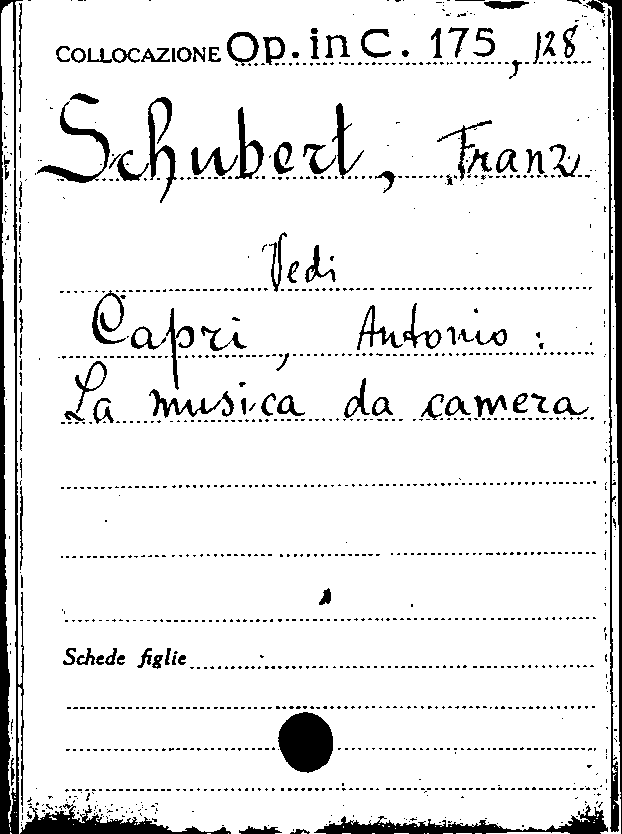 COLLOCAZIONE Op. in C. 175, 128
Schubert, Franz
Vedi
Capri, Antonio:
La musica da camera
Schede figlie